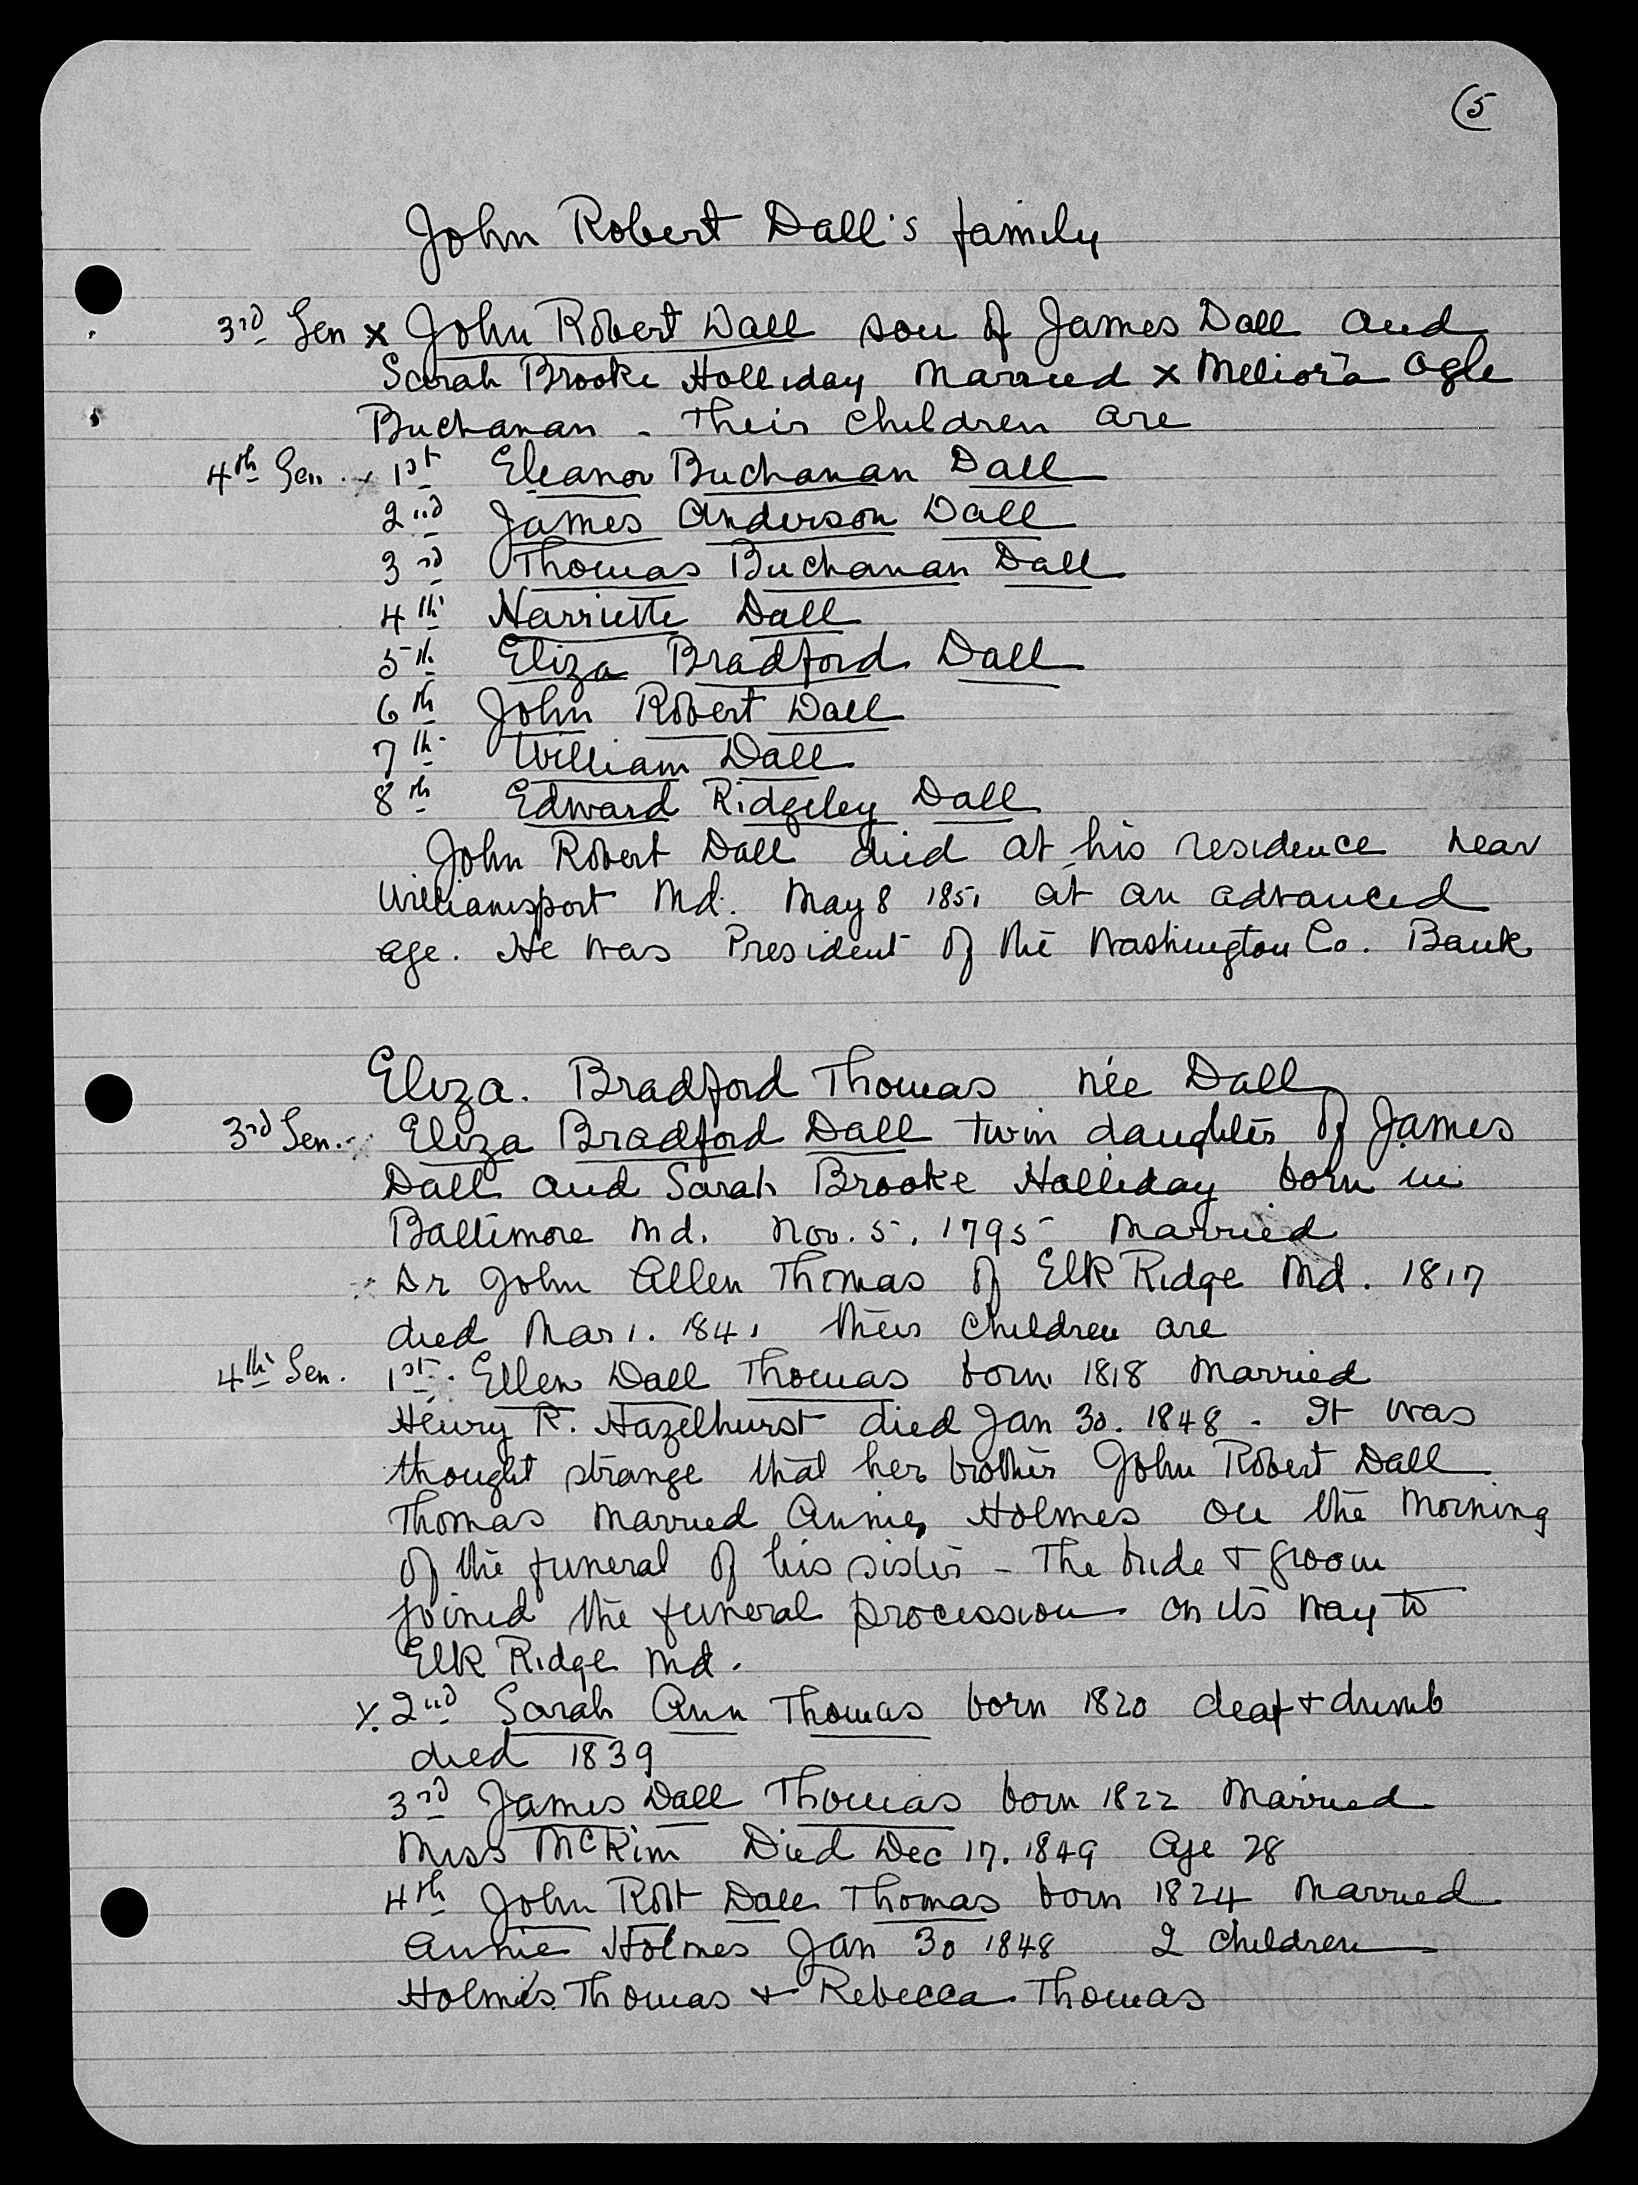 5
John Robert Dall's family
3rd Gen x John Robert Dall son of James Dall and
Sarah Brooke Holliday married x Meliora Ogle
Buchanan - Their children are
4th Gen. x 1st Eleanor Buchanan Dall
2nd James Anderson Dall
3rd Thomas Buchanan Dall
4th Harriette Dall
5th Eliza Bradford Dall
6th John Robert Dall
7th William Dall
8th Edward Ridgeley Dall
John Robert Dall died at his residence near
Williamsport Md. May 8 1851 at an advanced
age. He was President of the Washington Co. Bank
Eliza. Bradford Thomas née Dall
3rd Gen. Eliza Bradford Dall twin daughter of James
Dall and Sarah Brooke Holliday born in
Baltimore Md. Nov. 5, 1795 married
Dr John Allen Thomas of Elk Ridge Md. 1817
died Mar 1. 1841 their children are
4th Gen. 1st. Ellen Dall Thomas born 1818 married
Henry R. Hazelhurst died Jan 30. 1848 - It was
thought strange that her brother John Robert Dall
Thomas married Annie Holmes on the morning
of the funeral of his sister - The bride + groom
joined the funeral procession on its way to
Elk Ridge Md.
x. 2nd Sarah Ann Thomas born 1820 deaf + dumb
died 1839
3rd James Dall Thomas born 1822 married
Miss McKim Died Dec 17. 1849 age 28
4th John Robt Dall Thomas born 1824 married
Annie Holmes Jan 30 1848 2 children
Holmes Thomas + Rebecca Thomas